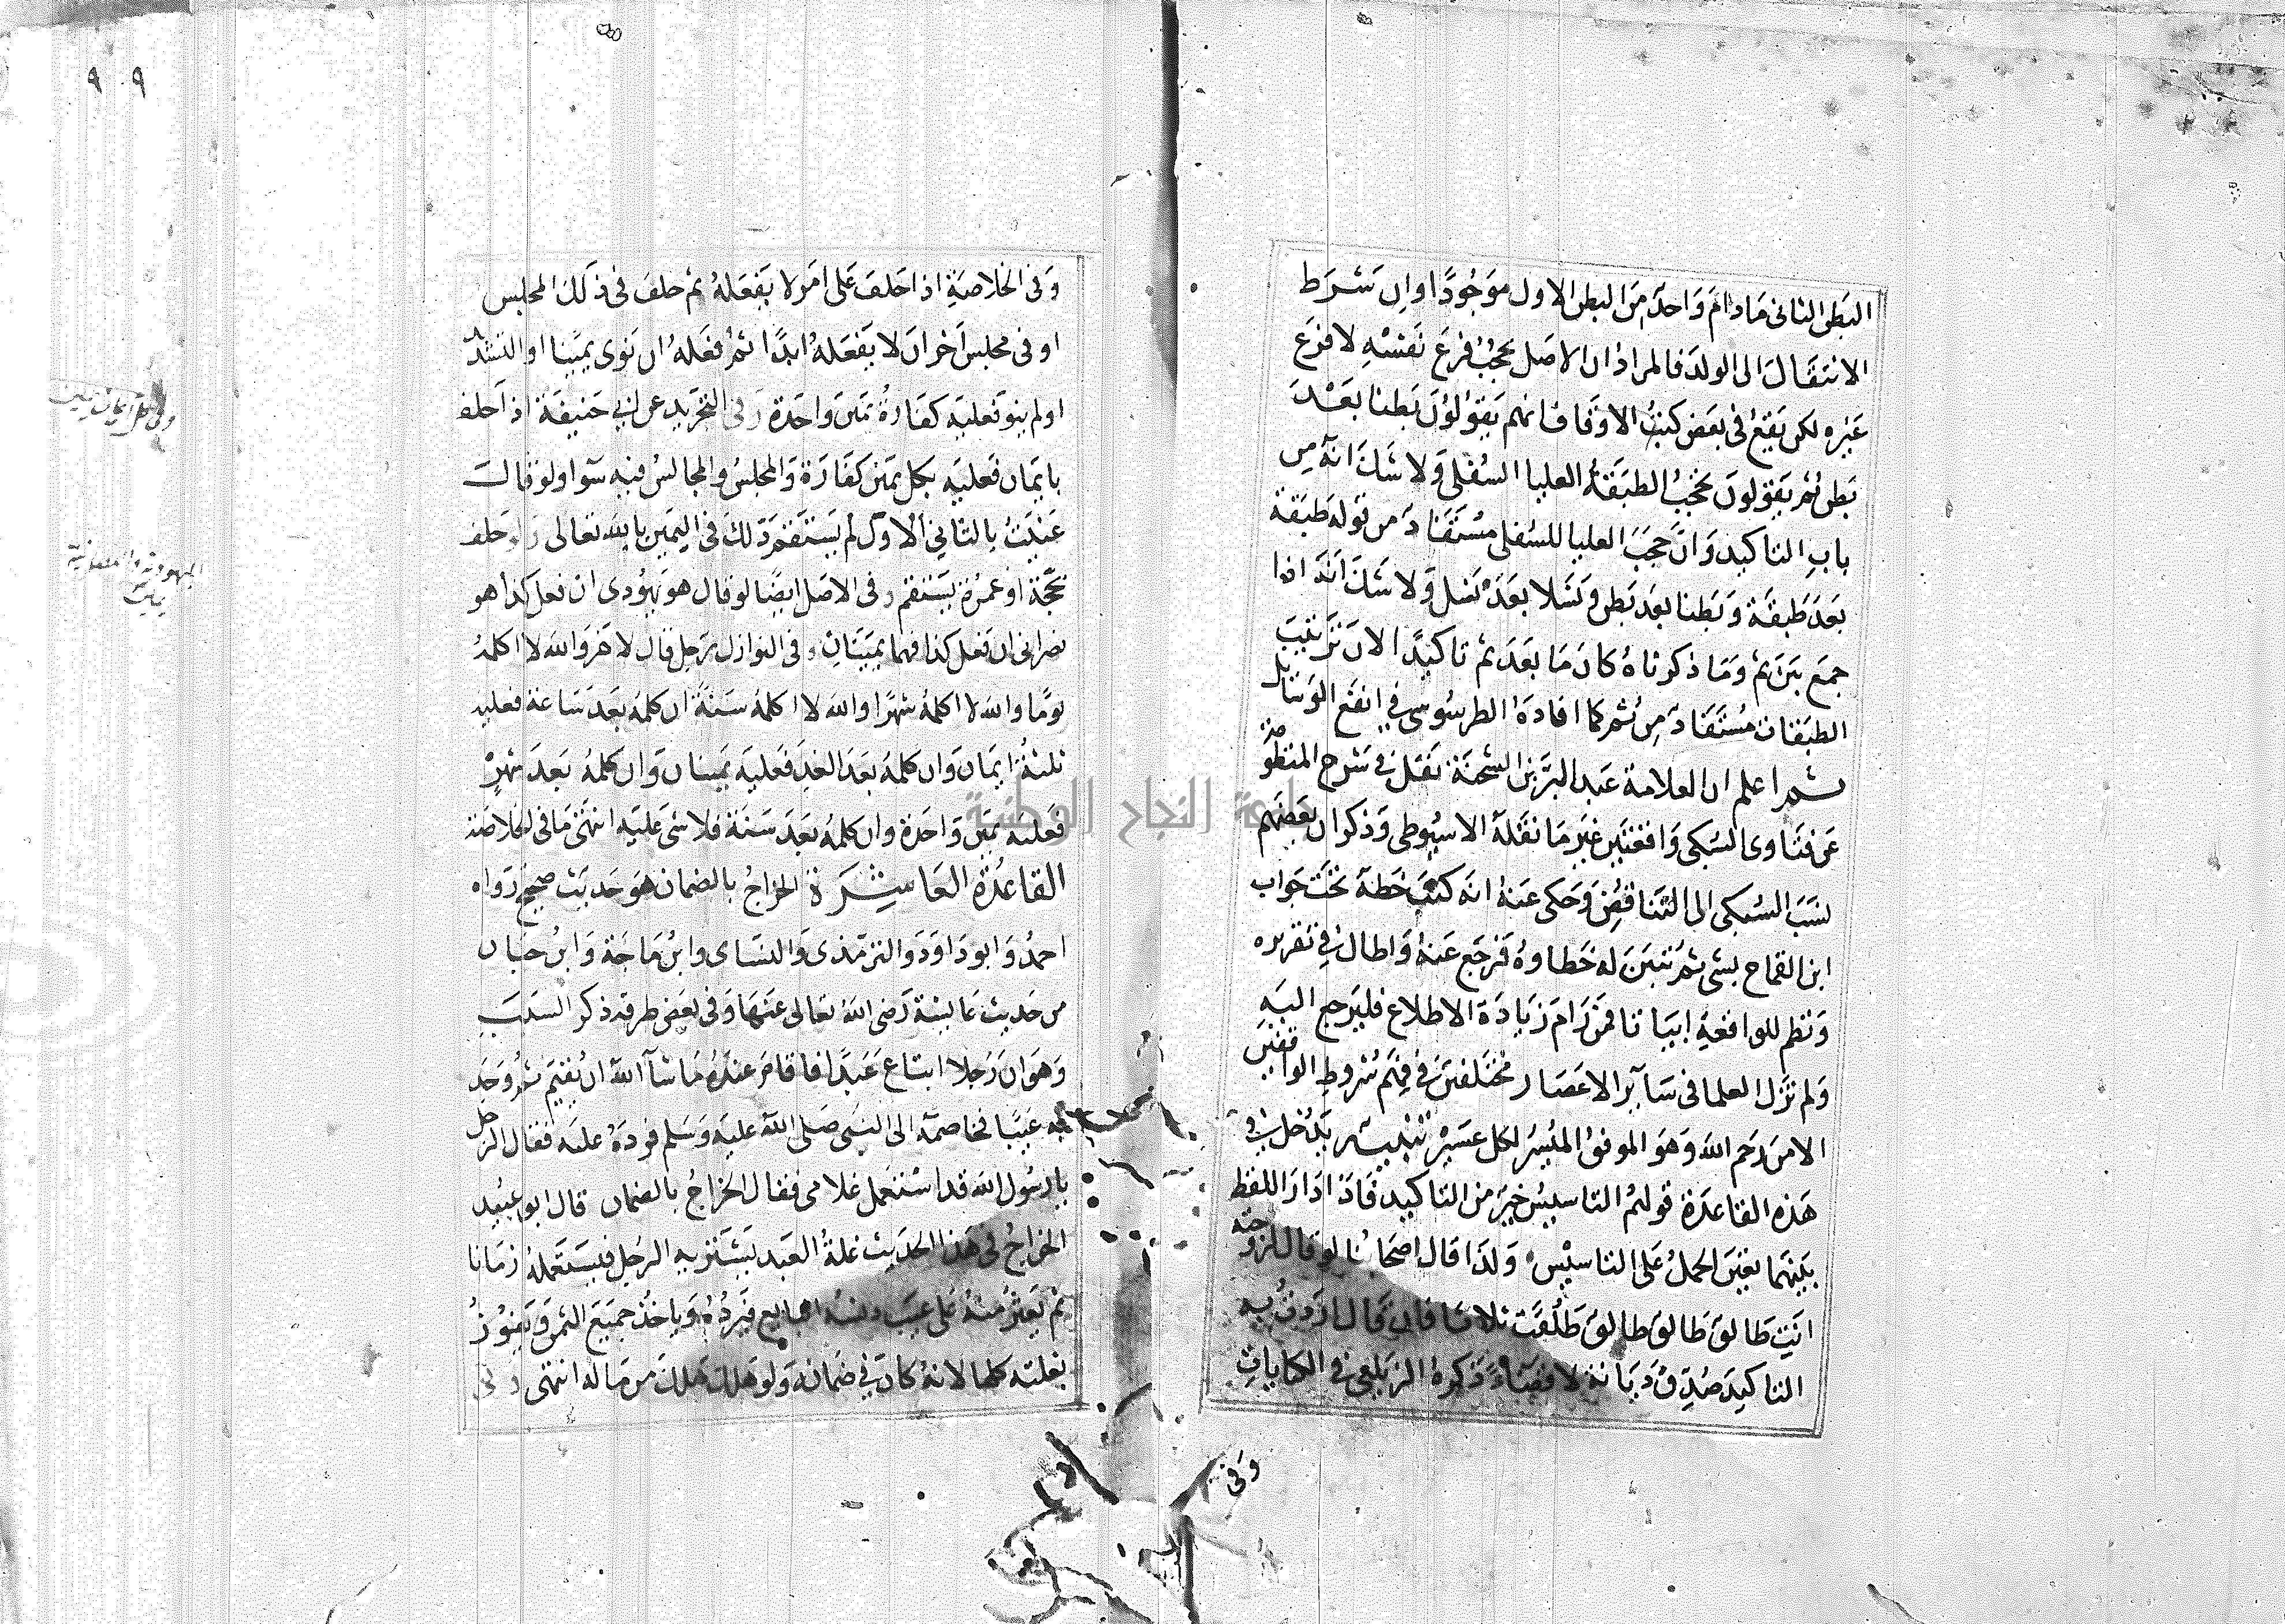 البطن الثاني مادام واحد من البطن الاول موجودا وان شرط
الانتقال الى الولد فالمراد ان الاصل يحجب فرع نفسه لا فرع
غيره لكن يقع في بعض كتب الاوقاف انهم يقولون بطنا بعد
بطن ثم يقولون تحجب الطبقة العليا السفلى ولا شك انه من
باب التاكيد وان حجب العليا للسفلى مستفاد من قوله طبقة
بعد طبقة وبطنا بعد بطن ونسلا بعد نسل ولا شك انه اذا
جمع بين ثم وما ذكرناه كان ما بعد ثم تاكيدا لان ترتيب
الطبقات مستفاد من ثم كما افاده الطرسوسي في انفع الوسائل
ثم اعلم ان العلامة عبد البر بن الشحنة نقل في شرح المنظومة
عن فتاوى السبكي واقعتين غير ما نقله الاسيوطي وذكر ان بعضهم
نسب السبكي الى التناقض وحكى عنه انه كتب خطه تحت جواب
ابن القماح بشي ثم تبين له خطاوه فرجع عنه واطال في تقريره
ونظم للواقعة ابياتا فمن رام زيادة الاطلاع فليرجع اليه
ولم تزل العلما في ساير الاعصار مختلفين في فهم شروط الواقفين
الا من رحم الله وهو الموفق الميسر لكل عسير تنبيه يدخل في
هذه القاعدة قولهم التاسيس خير من التاكيد فاذا دار اللفظ
بينهما تعين الحمل على التاسيس ولذا قال اصحابنا لو قال لزوجته
انت طالق طالق طالق طلقت ثلاثا فان قال اردت به
التاكيد صدق ديانة لا قضاء ذكره الزيلعي في الكنايات
وفي
٩٠٩
وفي الخلاصة اذا حلف على امر لا يفعله ثم حلف في ذلك المجلس
او في مجلس اخر ان لا يفعله ابدا ثم فعله ان نوى يمينا او التشديد
او لم ينو فعليه كفارة يمين واحدة وفي التجريد عن ابي حنيفة اذا حلف
بايمان فعليه بكل يمين كفارة والمجلس والمجالس فيه سوا ولو قال
عنيت بالثاني الاول لم يستقم ذلك في اليمين بالله تعالى ولو حلف
بحجة او عمرة يستقم وفي الاصل ايضا لو قال هو يهودي ان فعل كذا هو
نصراني ان فعل كذا فهما يمينان وفي النوازل رجل قال لاخر والله لا اكلمه
يوما والله لا اكلمه شهرا والله لا اكلمه سنة ان كلمه بعد ساعة فعليه
ثلثة ايمان وان كلمه بعد الغد فعليه يمينان وان كلمه بعد شهر
فعليه يمين واحدة وان كلمه بعد سنة فلا شي عليه انتهى ما في الخلاصة
القاعدة العاشرة الخراج بالضمان هو حديث صحيح رواه
احمد وابو داود والترمذى والنساى وابن ماجة وابن حبان
من حديث عايشة رضى الله تعالى عنها وفي بعض طرقه ذكر السبب
وهو ان رجلا ابتاع عبدا فاقام عنده ما شآ الله ان يقيم ثم وجد
به عيبا فخاصمه الى النبى صلى الله عليه وسلم فرده عليه فقال الرجل
يا رسول الله قد استعمل غلامى فقال الخراج بالضمان قال ابو عبيد
الخراج في هذا الحديث غلة العبد يشتريه الرجل فيستعمله زمانا
ثم يعثر منه على عيب دلسه البايع فيرده وياخذ جميع الثمن ويفوز
بغلته كلها لانه كان في ضمانه ولو هلك هلك من ماله انتهى وفي